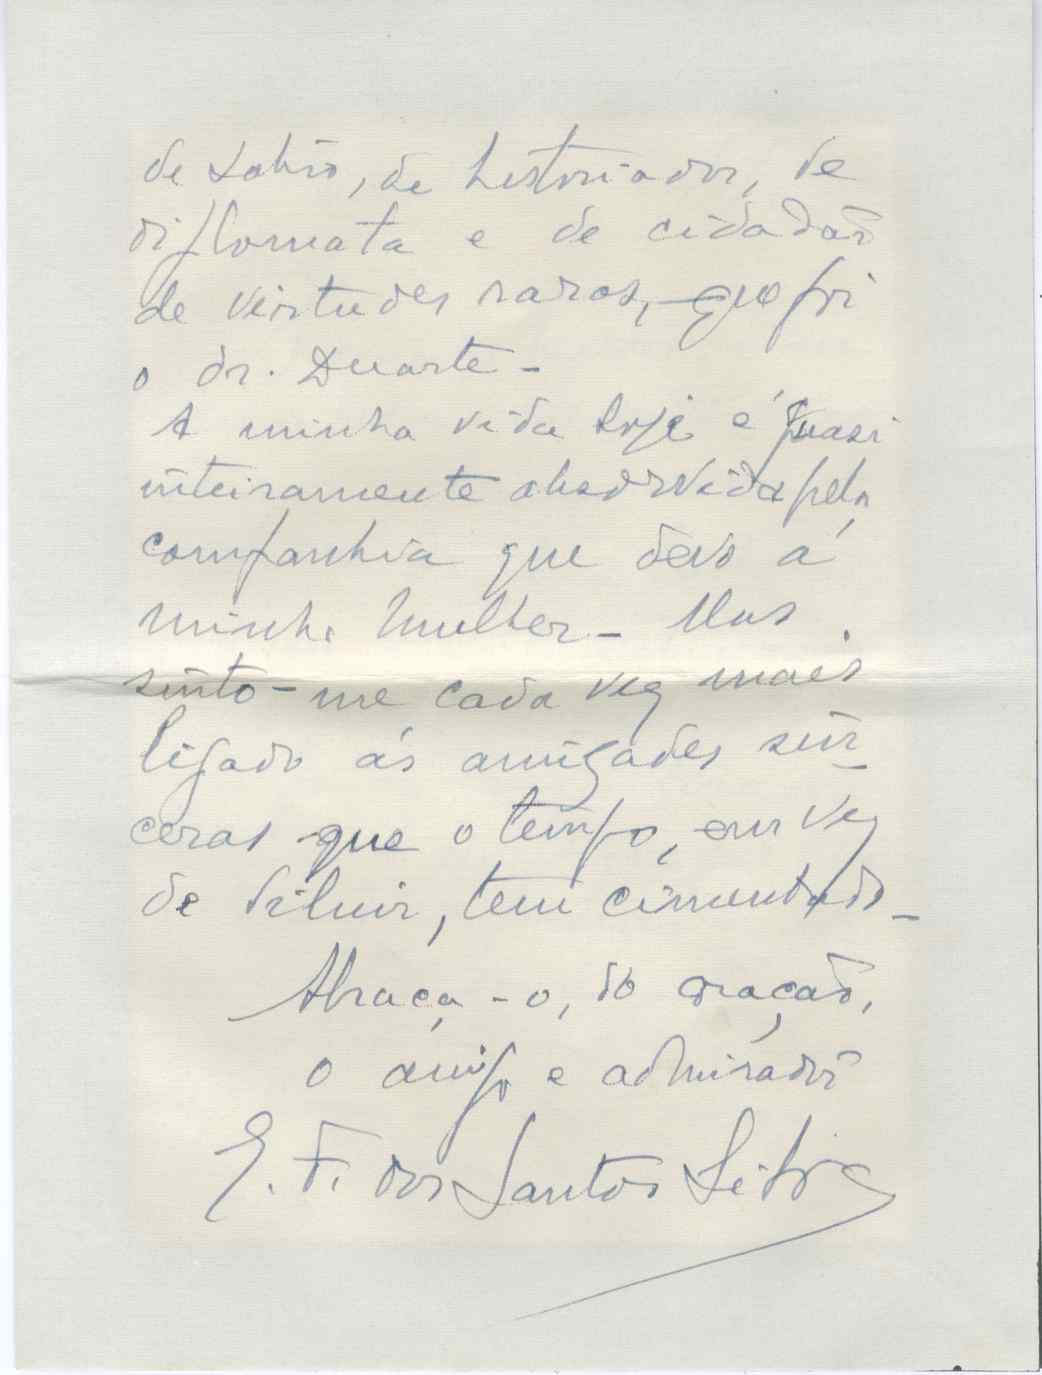 de sabio, de historiador, de
diplomata e de cidadão
de virtudes raras, que foi
o dr. Duarte -
A minha vida hoje é quasi
inteiramente absorvida pela
companhia que devo á
minha mulher - Mas
sinto-me cada vez mais
ligado ás amizades sin-
ceras que o tempo, em vez
de diluir, tem cimentado -
Abraça-o, do coração,
o amigo e admirador
E. F. dos Santos Silva